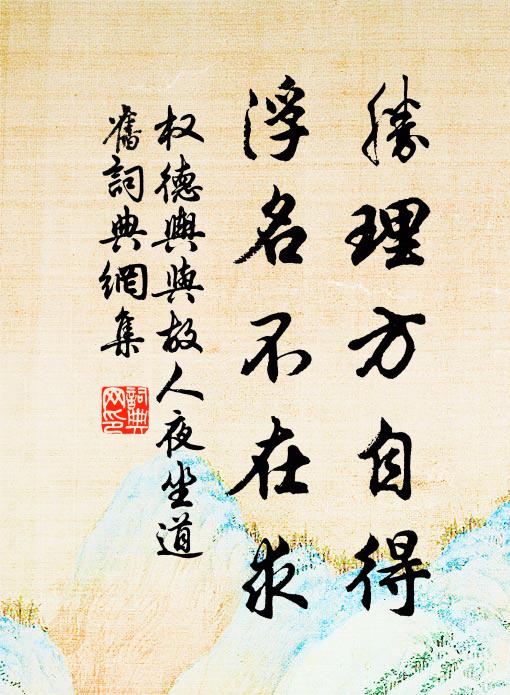 勝理方自得
浮名不在求
权德輿與故人夜坐道
舊詞典網集
詞典
网印